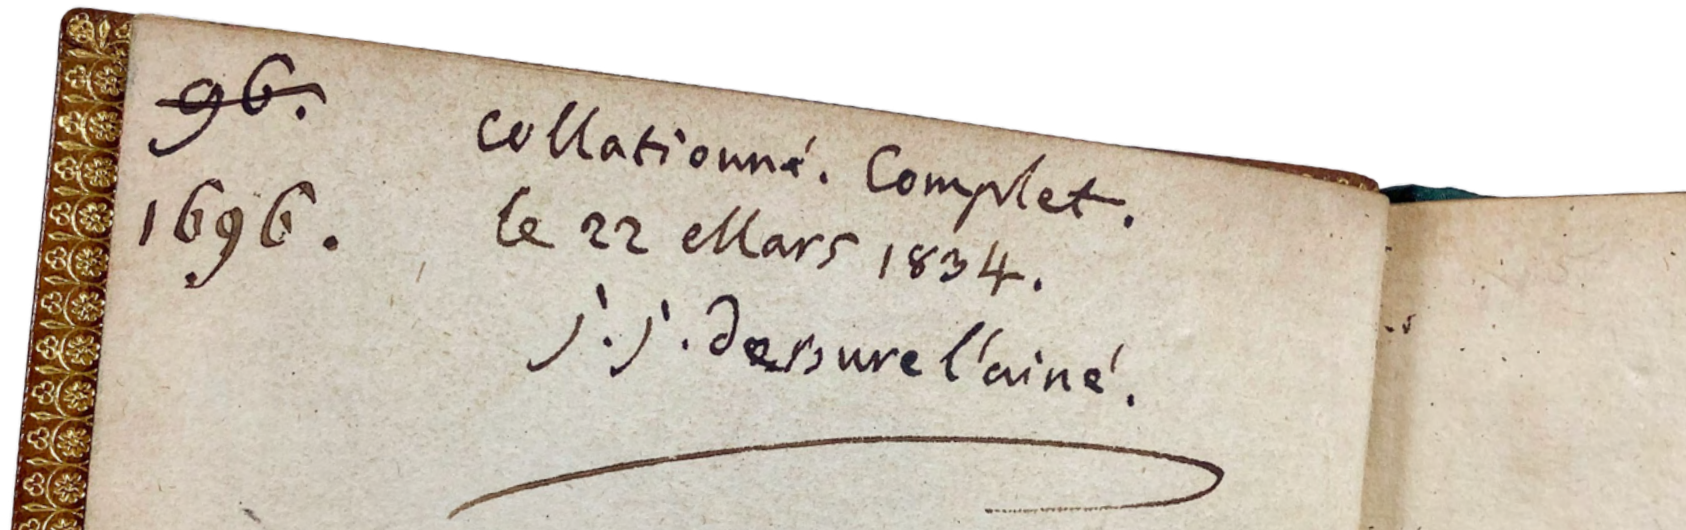 96.
1696.
Collationné. Complet.
le 22 Mars 1834.
j. j. debure l'ainé.